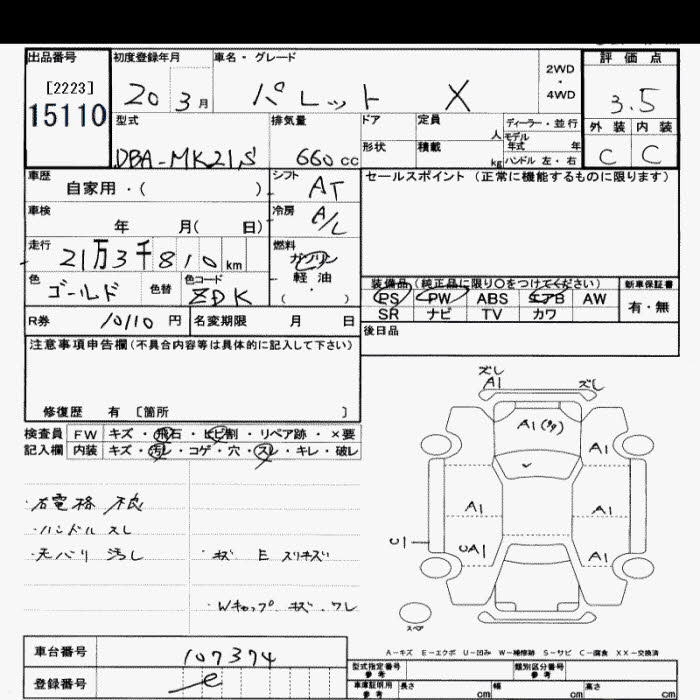 出品番号
[2223]
15110
初度登録年月
20 3月
車名・グレード
パレット X
2WD
・
4WD
評価点
3.5
外装 内装
C C
型式
DBA-MK21S
排気量
660cc
ドア
形状
定員
人
積載
kg
ディーラー・並行
モデル
年式 年
ハンドル 左・右
車歴
自家用・( )
シフト
AT
セールスポイント (正常に機能するものに限ります)
車検
年 月( 日)
冷房
A/L
走行
21万3千810km
燃料
ガソリン
軽油
・
( )
色
ゴールド
色替
色コード
ZDK
装備品(純正品に限り○をつけてください)
新車保証書
PS PW ABS エアB AW
SR ナビ TV カワ
有・無
R券 10110 円
名変期限 月 日
後日品
注意事項申告欄(不具合内容等は具体的に記入して下さい)
修復歴 有 [箇所 ]
検査員 FW キズ・飛石・ヒビ割・リペア跡・×要
記入欄 内装 キズ・汚レ・コゲ・穴・スレ・キレ・破レ
・右電格 不良
・ハンドル スレ
・天バリ 汚レ
・キズ E スリキズ
・Wキャップ キズ・ワレ
ズレ
A1
ズレ
A1(タ)
A1
A1
A1
UA1
A1
U1
スペア
A－キズ E－エクボ U－凹み W－補修跡 S－サビ C－腐食 XX－交換済
車台番号
107374
登録番号
型式指定番号
参考
類別区分番号
参考
車庫証明用
参考
長さ
cm
幅
cm
高さ
cm